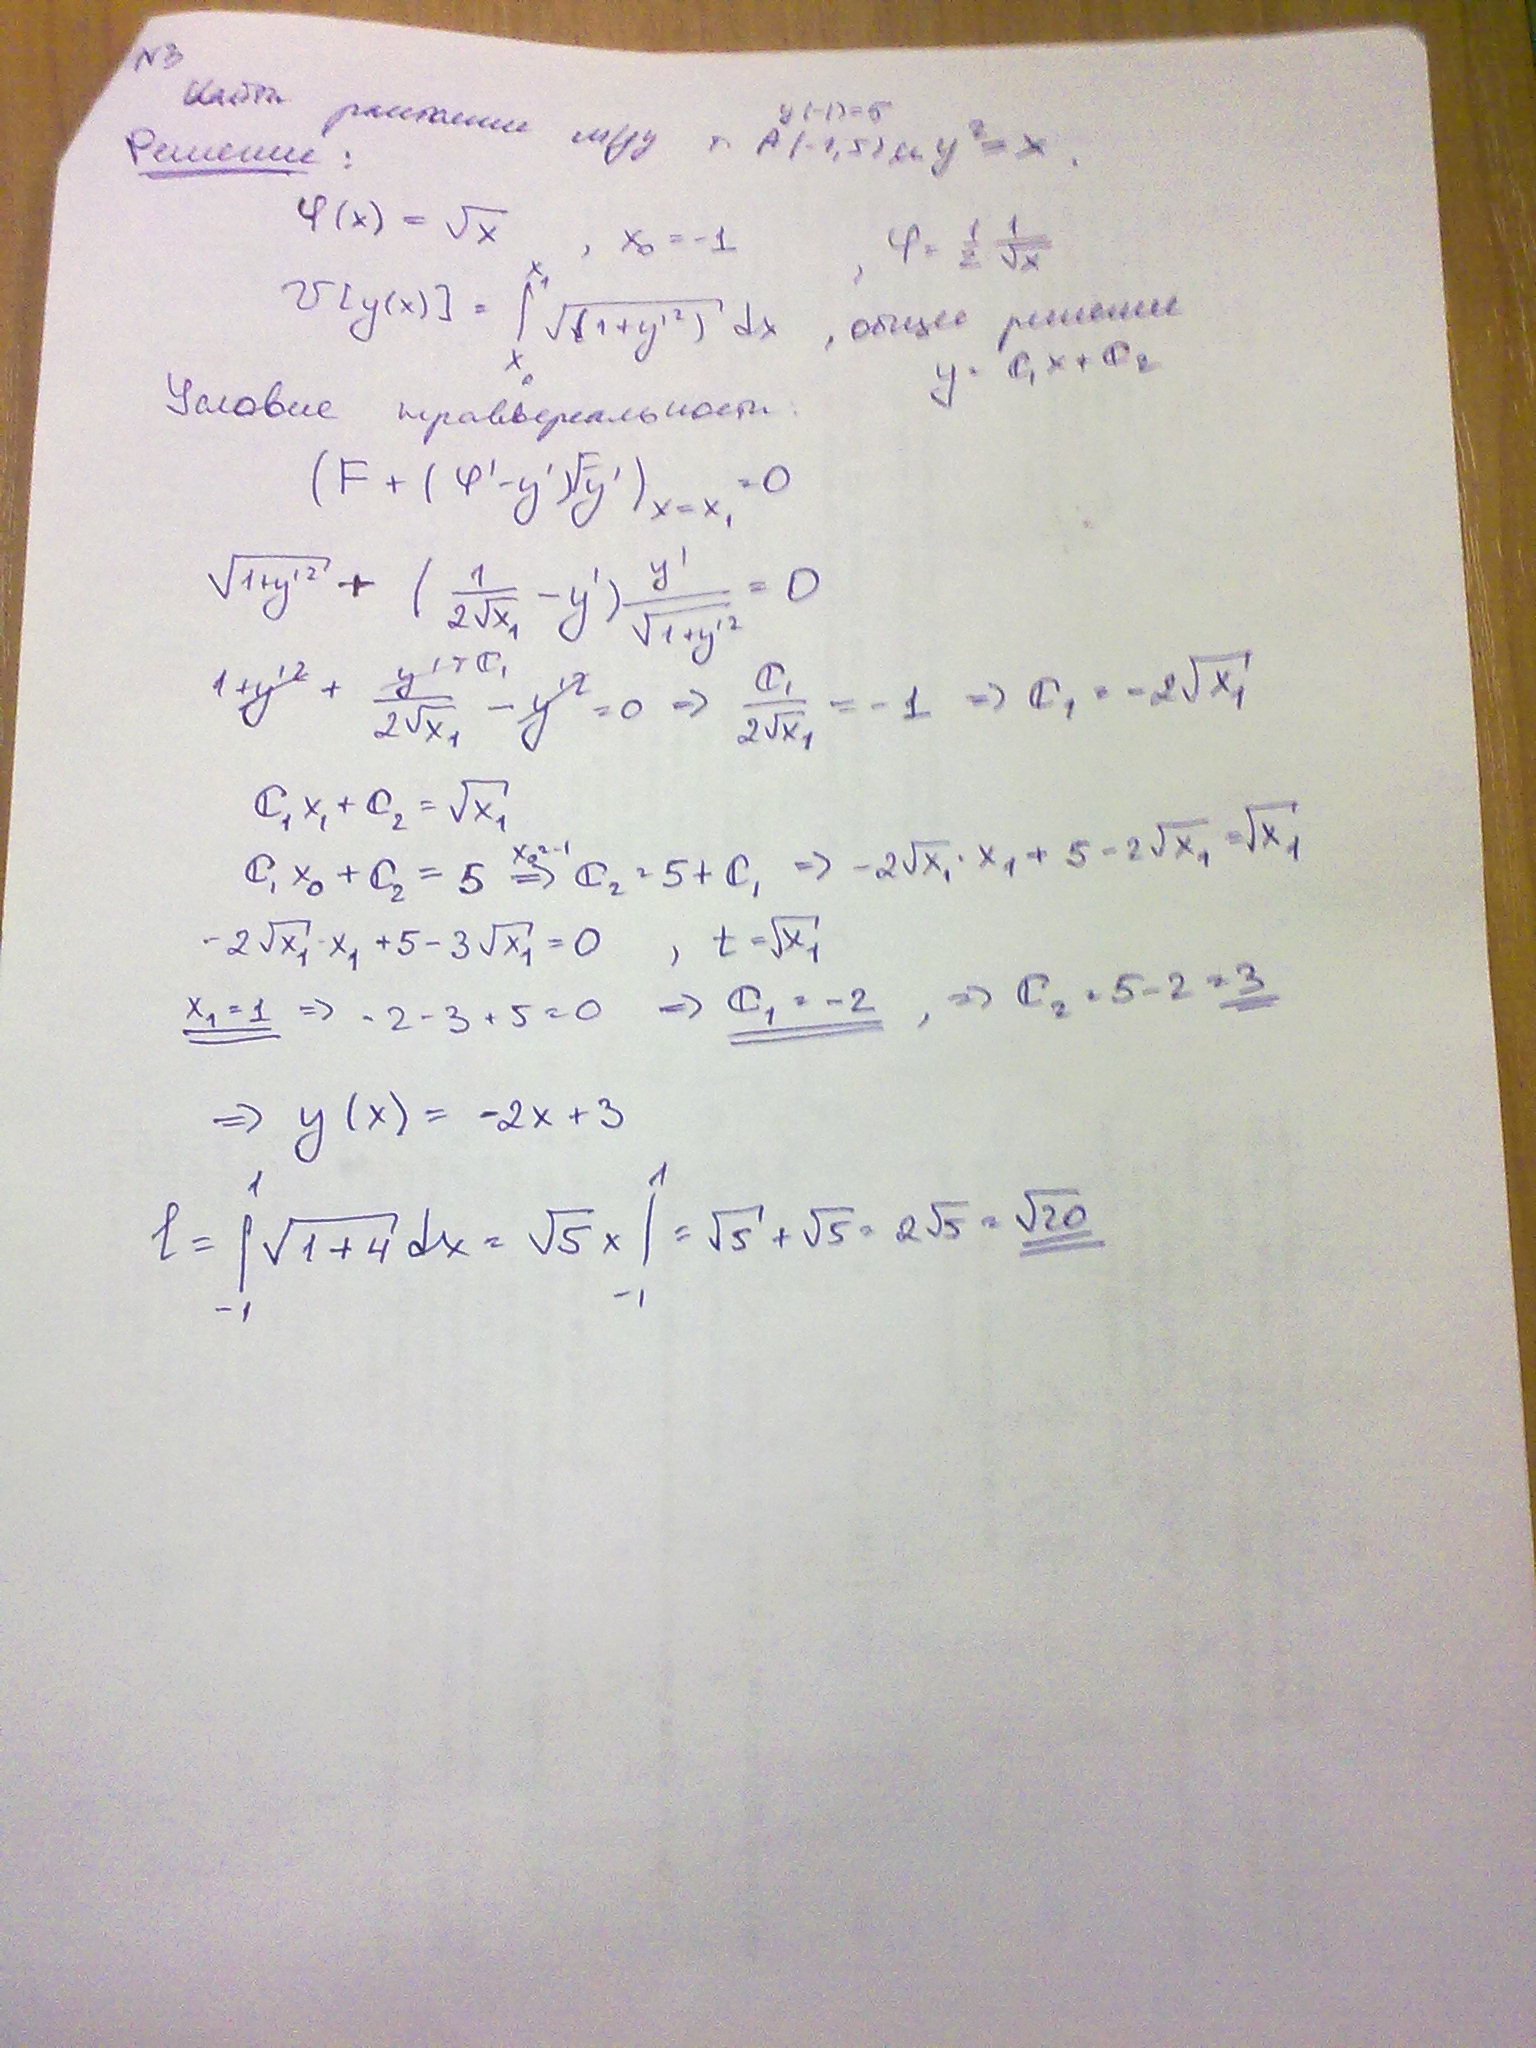 N3
Найти расстояние м/ду т. A(-1,5) и y² = x.
y(-1)=5
Решение:
φ(x) = √x , x₀ = -1 , φ' = 1/2 1/√x
V[y(x)] = ∫_{x₀}^{x₁} √(1+y'²) dx , общее решение
y = C₁x + C₂
Условие трансверсальности:
(F + (φ' - y')F_y')_{x=x₁} = 0
√(1+y'²) + (1/(2√x₁) - y') y'/√(1+y'²) = 0
1+y'² + y'/(2√x₁) - y'² = 0 => C₁/(2√x₁) = -1 => C₁ = -2√x₁
y' = C₁
C₁x₁ + C₂ = √x₁
C₁x₀ + C₂ = 5 =>^{x₀=-1} C₂ = 5 + C₁ => -2√x₁·x₁ + 5 - 2√x₁ = √x₁
-2√x₁·x₁ + 5 - 3√x₁ = 0 , t = √x₁
x₁ = 1 => -2 - 3 + 5 = 0 => C₁ = -2 , => C₂ = 5 - 2 = 3
=> y(x) = -2x + 3
l = ∫_{-1}^{1} √(1+4) dx = √5 x |_{-1}^{1} = √5 + √5 = 2√5 = √20